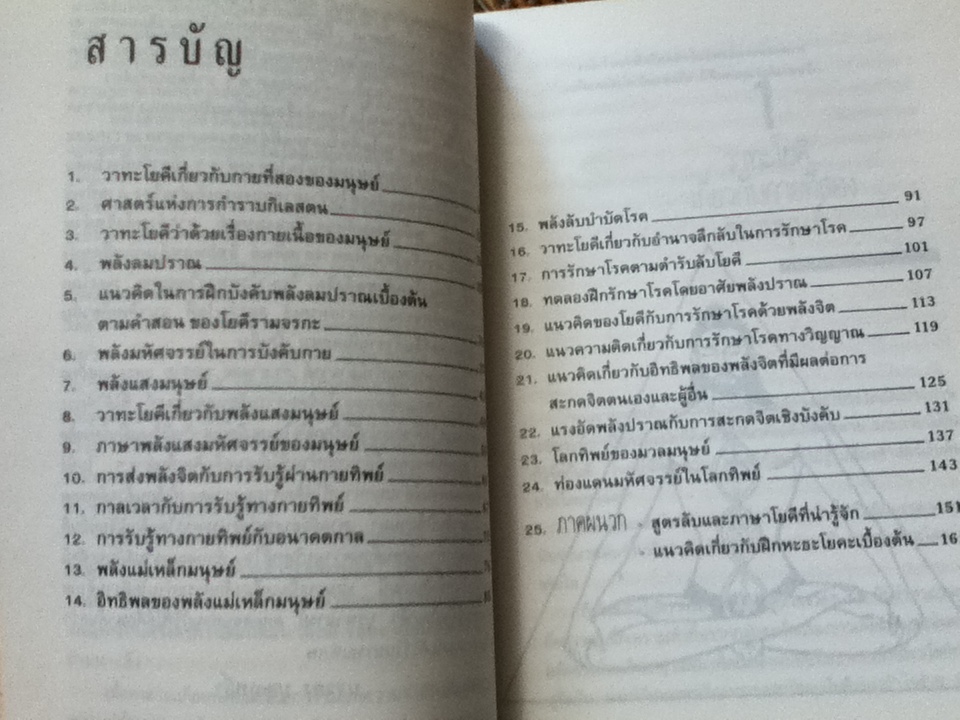 สารบัญ
1. วาทะโยคีเกี่ยวกับกายที่สองของมนุษย์
2. ศาสตร์แห่งการกำราบกิเลสตน
3. วาทะโยคีว่าด้วยเรื่องกายเนื้อของมนุษย์
4. พลังลมปราณ
5. แนวคิดในการฝึกบังคับพลังลมปราณเบื้องต้น
ตามคำสอน ของโยคีรามจรกะ
6. พลังมหัศจรรย์ในการบังคับกาย
7. พลังแสงมนุษย์
8. วาทะโยคีเกี่ยวกับพลังแสงมนุษย์
9. ภาษาพลังแสงมหัศจรรย์ของมนุษย์
10. การส่งพลังจิตกับการรับรู้ผ่านกายทิพย์
11. กาลเวลากับการรับรู้ทางกายทิพย์
12. การรับรู้ทางกายทิพย์กับอนาคตกาล
13. พลังแม่เหล็กมนุษย์
14. อิทธิพลของพลังแม่เหล็กมนุษย์
15. พลังลับบำบัดโรค 91
16. วาทะโยคีเกี่ยวกับอำนาจลึกลับในการรักษาโรค 97
17. การรักษาโรคตามตำรับลับโยคี 101
18. ทดลองฝึกรักษาโรคโดยอาศัยพลังปราณ 107
19. แนวคิดของโยคีกับการรักษาโรคด้วยพลังจิต 113
20. แนวความคิดเกี่ยวกับการรักษาโรคทางวิญญาณ 119
21. แนวคิดเกี่ยวกับอิทธิพลของพลังจิตที่มีผลต่อการ
สะกดจิตตนเองและผู้อื่น 125
22. แรงอัดพลังปราณกับการสะกดจิตเชิงบังคับ 131
23. โลกทิพย์ของมวลมนุษย์ 137
24. ท่องแดนมหัศจรรย์ในโลกทิพย์ 143
25. ภาคผนวก • สูตรลับและภาษาโยคีที่น่ารู้จัก 151
• แนวคิดเกี่ยวกับฝึกหะธะโยคะเบื้องต้น 16